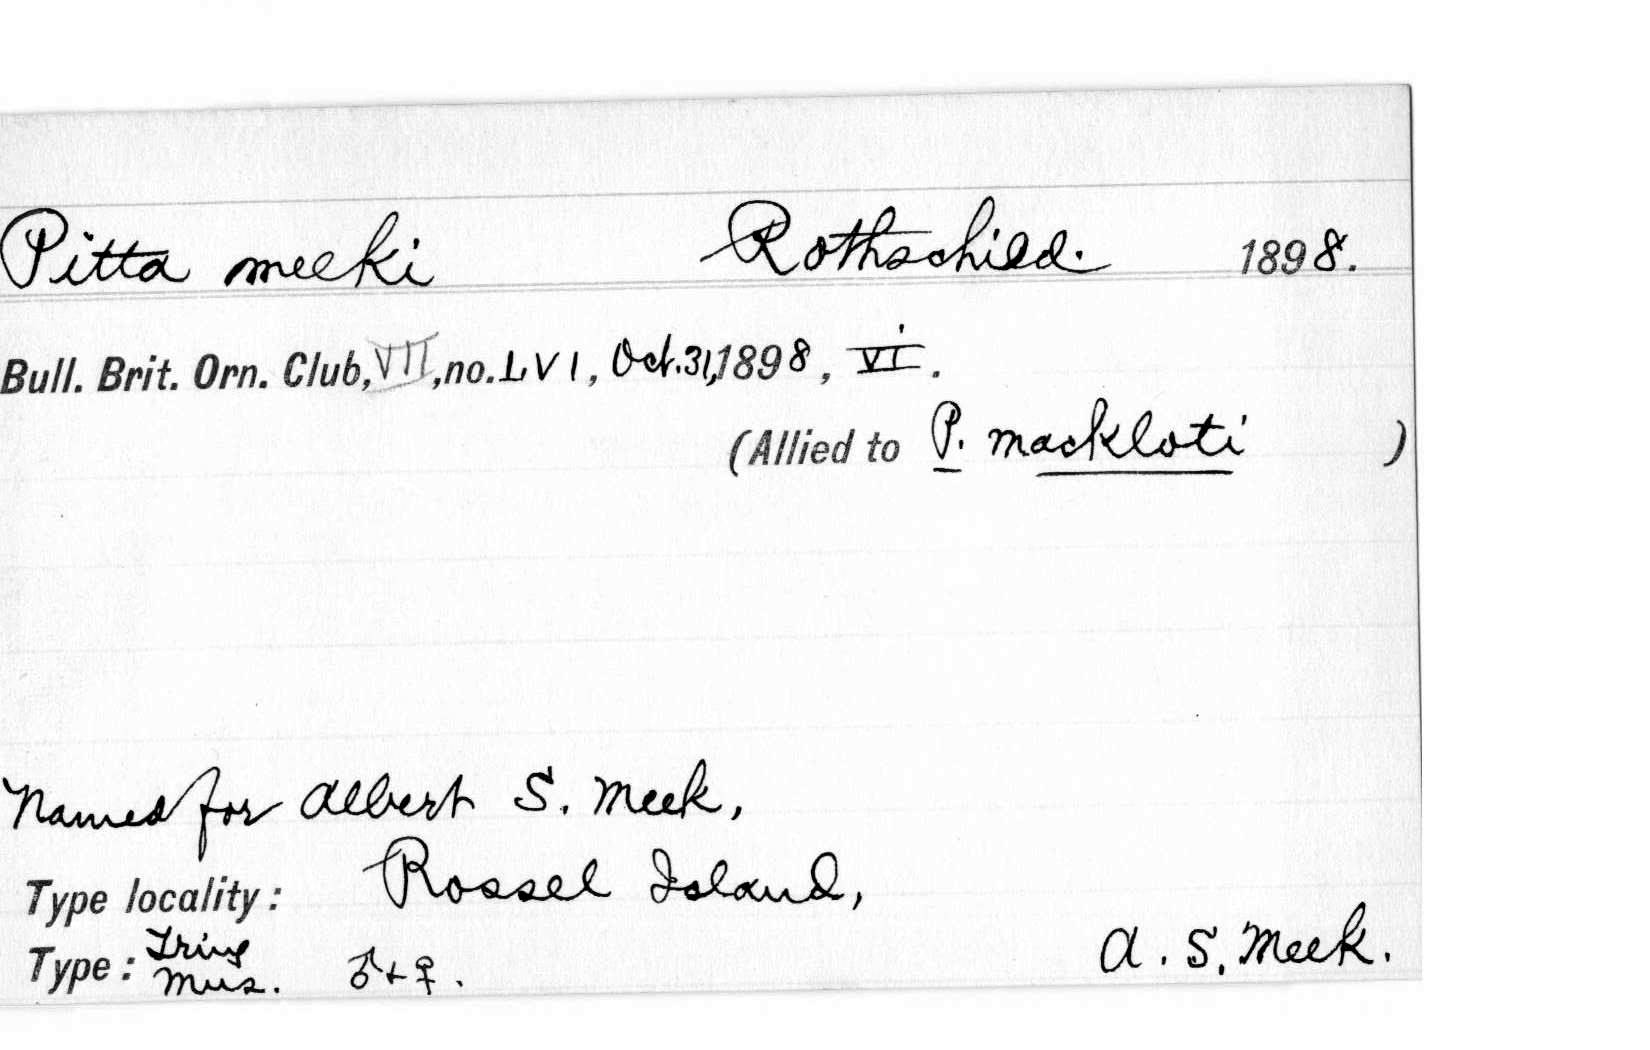 Pitta meeki Rothschild. 1898.
Bull. Brit. Orn. Club, VII, no. LVI, Oct. 31, 1898, VI.
(Allied to P. mackloti )
Named for Albert S. Meek,
Type locality: Rossel Island,
Type: Tring Mus. ♂ + ♀. A. S. Meek.